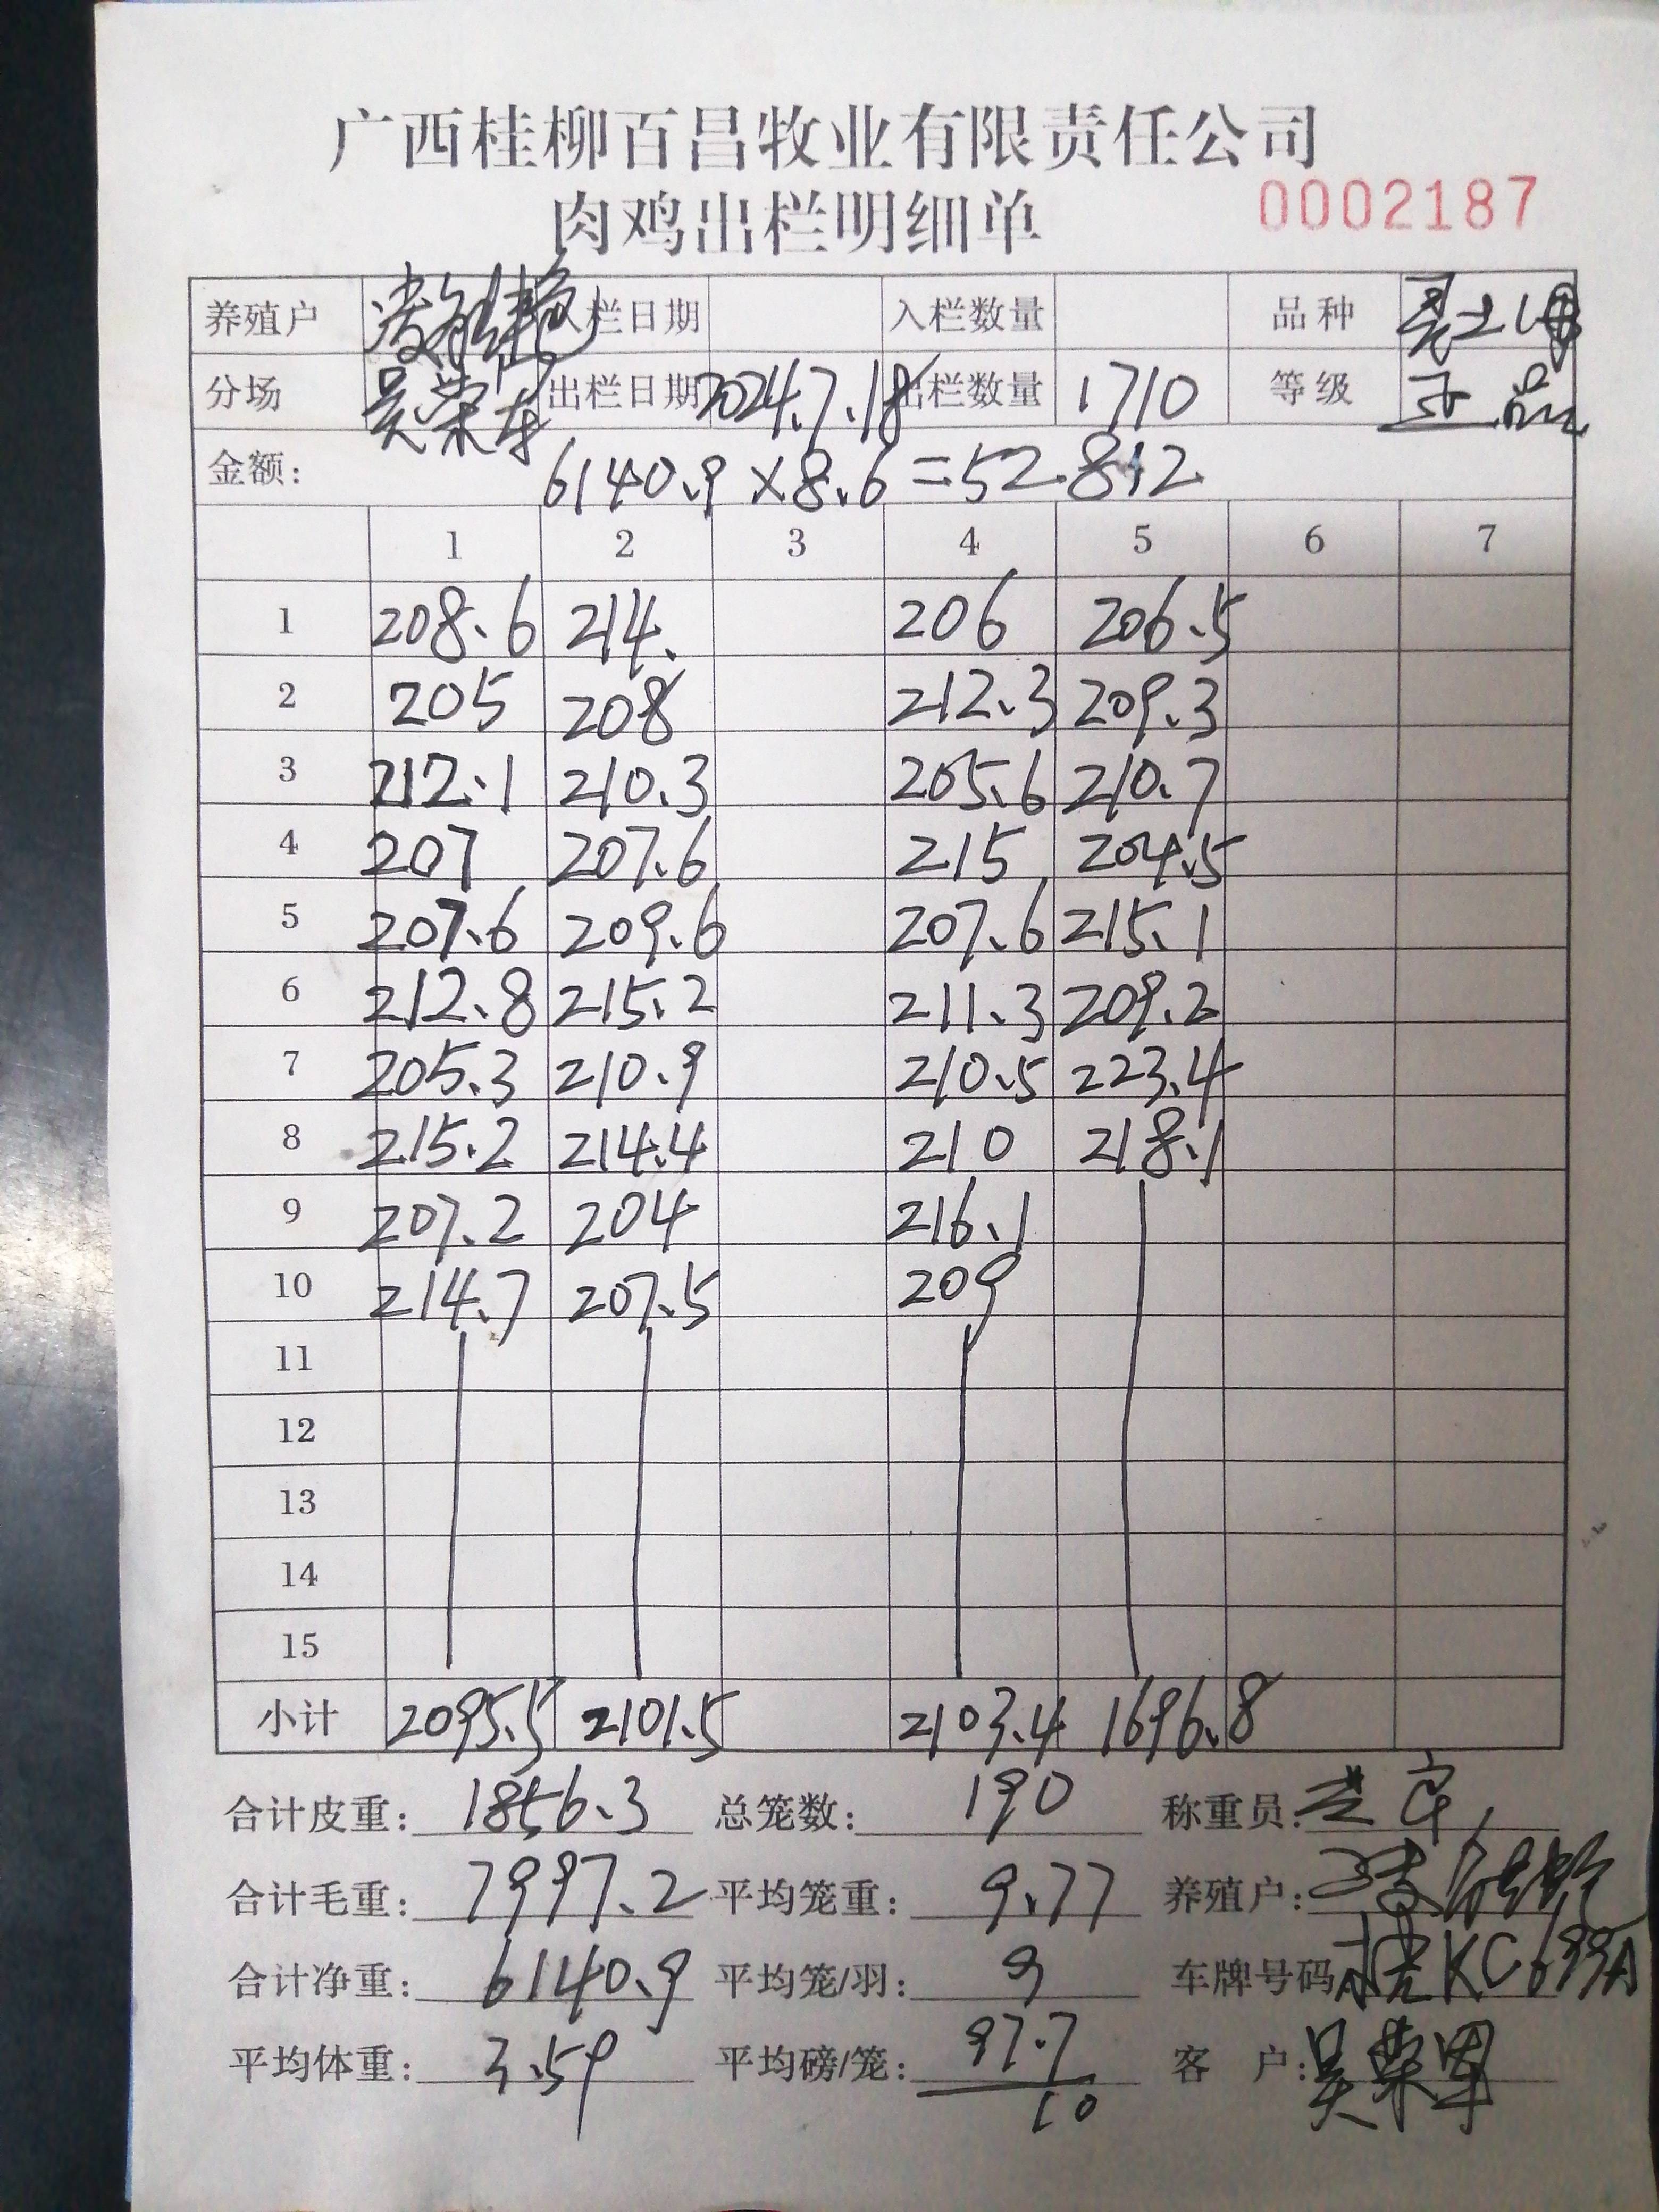 广西桂柳百昌牧业有限责任公司
肉鸡出栏明细单 0002187
养殖户 入栏日期 入栏数量 品种
分场 吴荣军 出栏日期 2024.7.18 出栏数量 1710 等级 正品
金额: 6140.9×8.6=52.812
1 2 3 4 5 6 7
1 208.6 214. 206 206.5
2 205 208 212.3 209.3
3 212.1 210.3 205.6 210.7
4 207 207.6 215 204.5
5 207.6 209.6 207.6 215.1
6 212.8 215.2 211.3 209.2
7 205.3 210.9 210.5 223.4
8 215.2 214.4 210 218.1
9 207.2 204 216.1
10 214.7 207.5 209
11
12
13
14
15
小计 2095.5 2101.5 2103.4 1696.8
合计皮重: 1856.3 总笼数: 190 称重员:
合计毛重: 7997.2 平均笼重: 9.77 养殖户:
合计净重: 6140.9 平均笼/羽: 9 车牌号码 桂KC699A
平均体重: 3.59 平均磅/笼: 97.7 客 户: 吴荣军
10